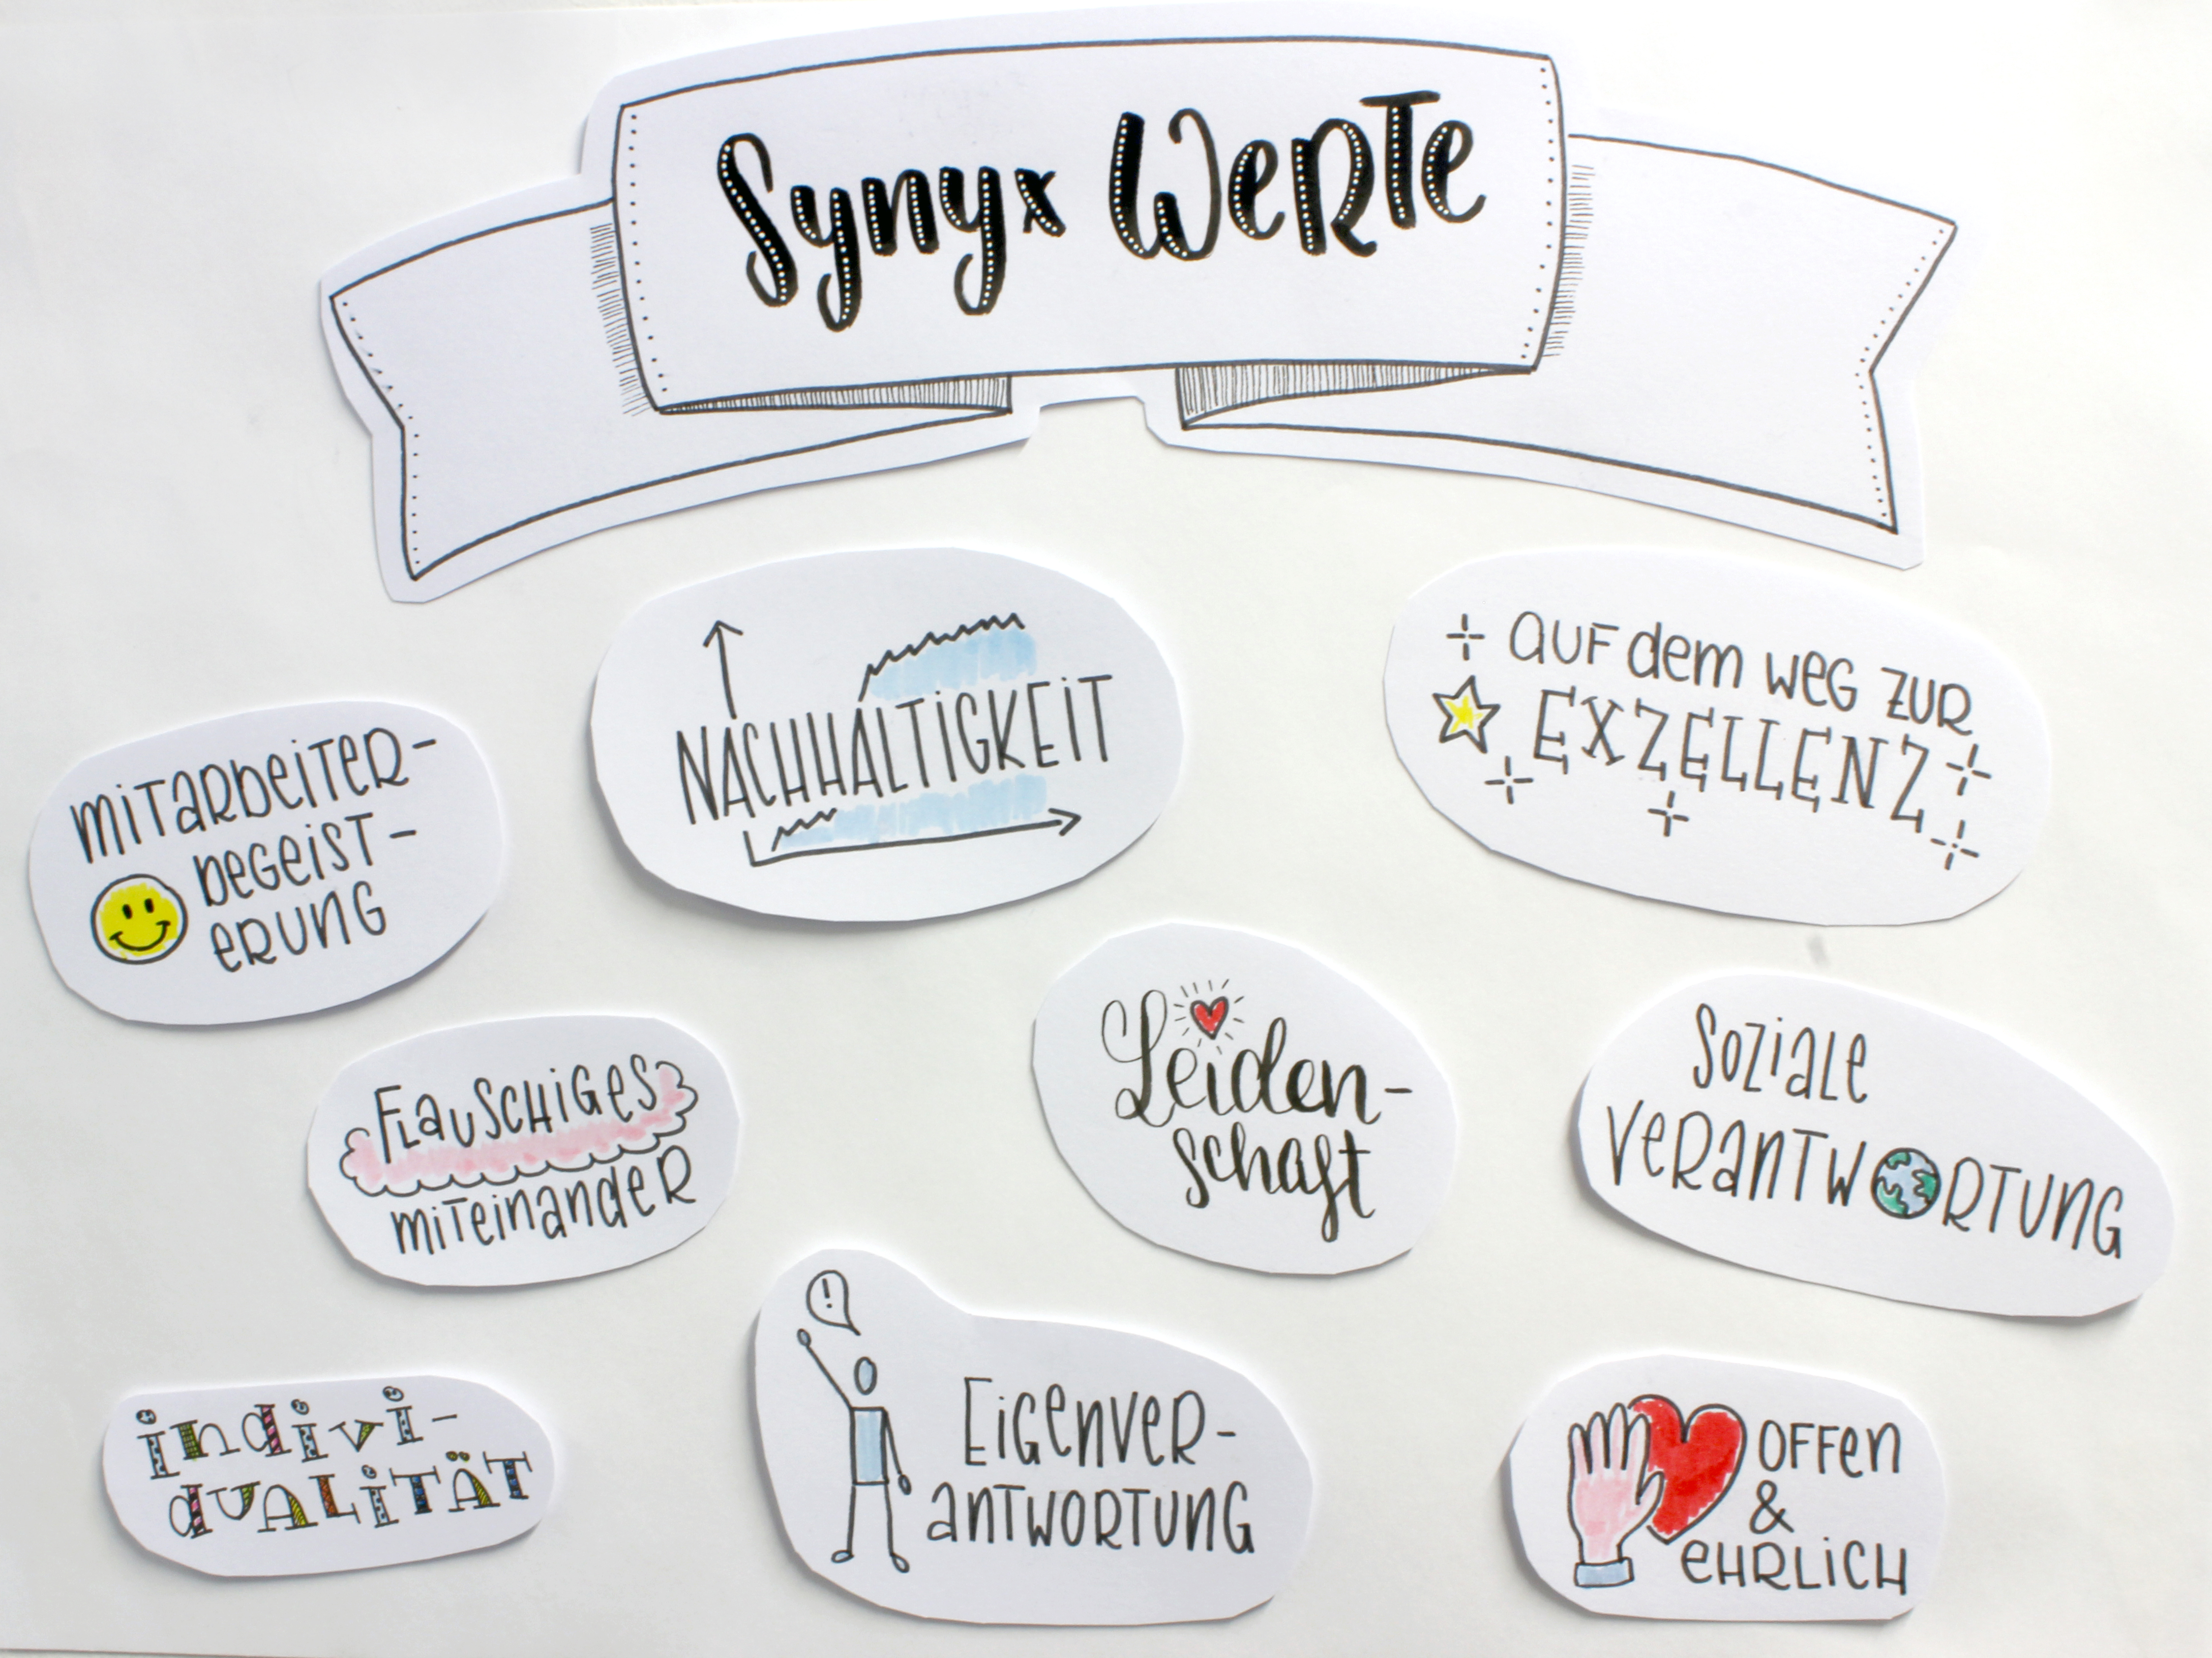 Synyx Werte
Nachhaltigkeit
auf dem Weg zur
Exzellenz
Mitarbeiter-
begeist-
erung
Flauschiges
Miteinander
Leiden-
schaft
Soziale
Verantwortung
Indivi-
dualität
!
Eigenver-
antwortung
Offen
&
ehrlich